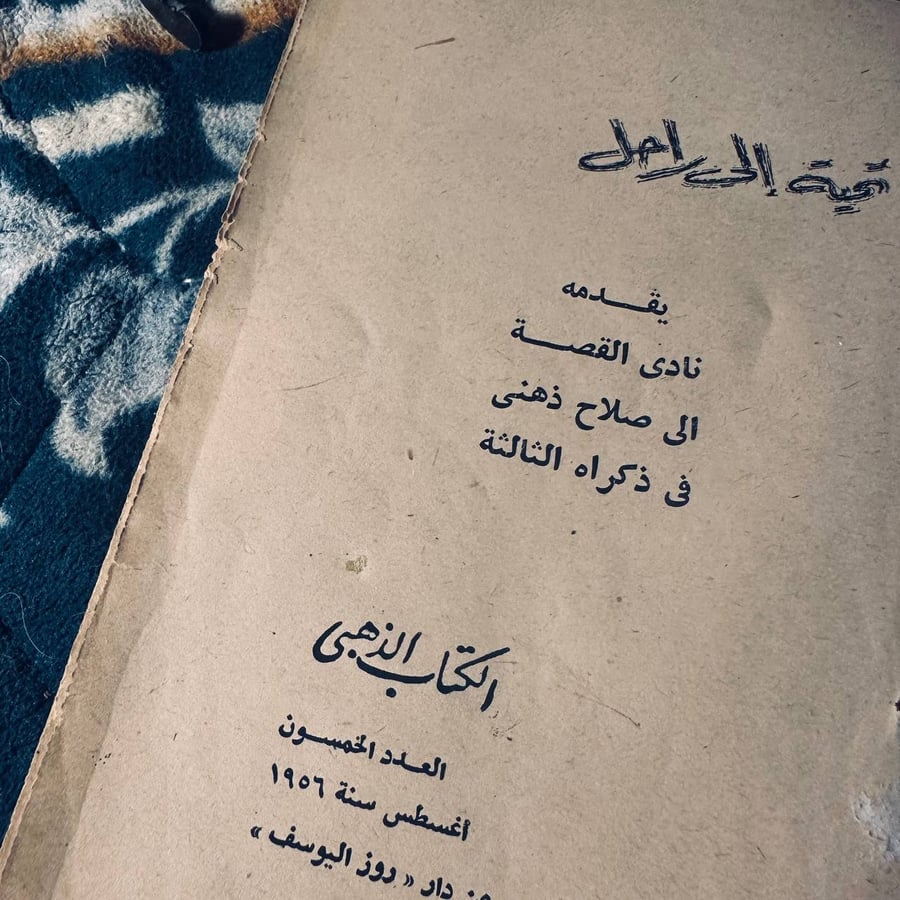 تحية إلى راحل
يقـــدمه
نادى القصـــة
الى صلاح ذهنى
فى ذكراه الثالثة
الكتاب الذهبى
العـدد الخمســون
أغسطس سنة ١٩٥٦
دار « روز اليوسف »